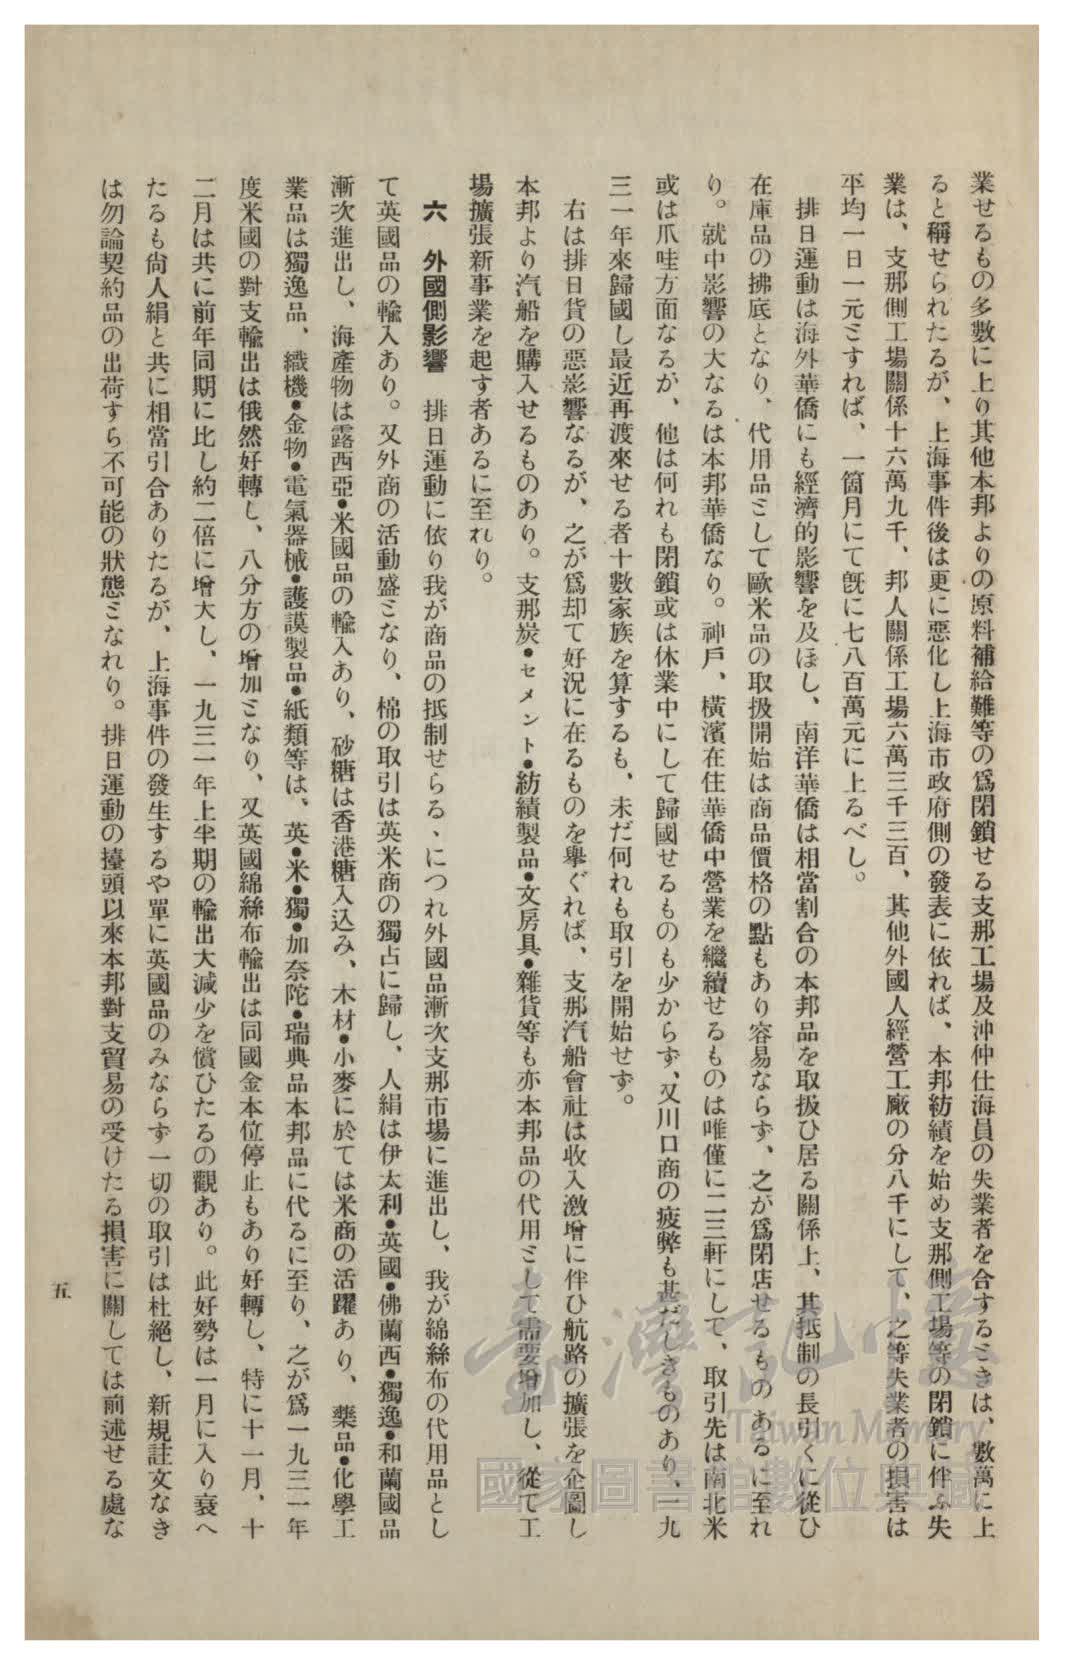 業せるもの多數に上り其他本邦よりの原料補給難等の爲閉鎖せる支那工場及沖仲仕海員の失業者を合するときは、數萬に上
ると稱せられたるが、上海事件後は更に惡化し上海市政府側の發表に依れば、本邦紡績を始め支那側工場等の閉鎖に伴ふ失
業は、支那側工場關係十六萬九千、邦人關係工場六萬三千三百、其他外國人經營工廠の分八千にして、之等失業者の損害は
平均一日一元とすれば、一箇月にて既に七八百萬元に上るべし。
排日運動は海外華僑にも經濟的影響を及ぼし、南洋華僑は相當割合の本邦品を取扱ひ居る關係上、其抵制の長引くに從ひ
在庫品の拂底となり、代用品として歐米品の取扱開始は商品價格の點もあり容易ならず、之が爲閉店せるものあるに至れ
り。就中影響の大なるは本邦華僑なり。神戶、橫濱在住華僑中營業を繼續せるものは唯僅に二三軒にして、取引先は南北米
或は爪哇方面なるが、他は何れも閉鎖或は休業中にして歸國せるものも少からず、又川口商の疲弊も甚だしきものあり、一九
三一年來歸國し最近再渡來せる者十數家族を算するも、未だ何れも取引を開始せず。
右は排日貨の惡影響なるが、之が爲却て好況に在るものを擧ぐれば、支那汽船會社は收入激增に伴ひ航路の擴張を企圖し
本邦より汽船を購入せるものあり。支那炭●セメント●紡績製品●文房具●雜貨等も亦本邦品の代用として需要增加し、從て工
場擴張新事業を起す者あるに至れり。
六 外國側影響 排日運動に依り我が商品の抵制せらるゝにつれ外國品漸次支那市場に進出し、我が綿絲布の代用品とし
て英國品の輸入あり。又外商の活動盛となり、棉の取引は英米商の獨占に歸し、人絹は伊太利●英國●佛蘭西●獨逸●和蘭國品
漸次進出し、海產物は露西亞●米國品の輸入あり、砂糖は香港糖入込み、木材●小麥に於ては米商の活躍あり、藥品●化學工
業品は獨逸品、織機●金物●電氣器械●護謨製品●紙類等は、英●米●獨●加奈陀●瑞典品本邦品に代るに至り、之が爲一九三一年
度米國の對支輸出は俄然好轉し、八分方の增加となり、又英國綿絲布輸出は同國金本位停止もあり好轉し、特に十一月、十
二月は共に前年同期に比し約二倍に增大し、一九三一年上半期の輸出大減少を償ひたるの觀あり。此好勢は一月に入り衰へ
たるも尙人絹と共に相當引合ありたるが、上海事件の發生するや單に英國品のみならず一切の取引は杜絕し、新規註文なき
は勿論契約品の出荷すら不可能の狀態となれり。排日運動の擡頭以來本邦對支貿易の受けたる損害に關しては前述せる處な
五
臺灣記憶
Taiwan Memory
國家圖書館數位典藏